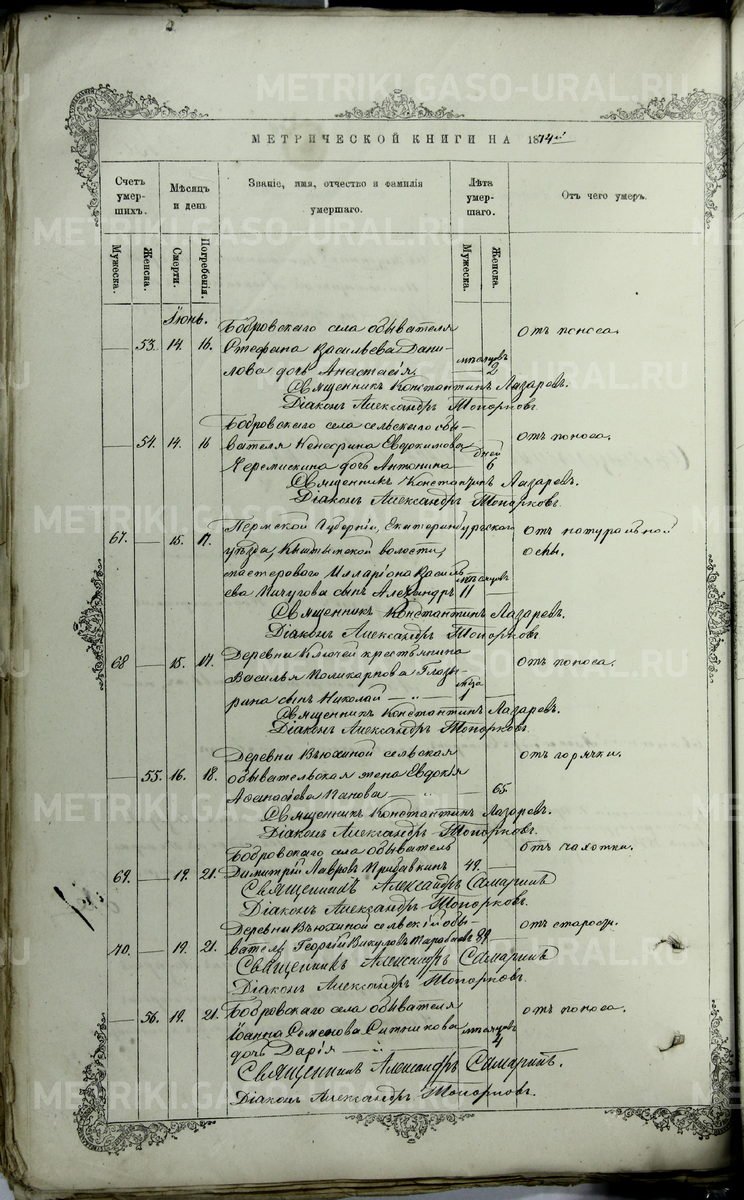 МЕТРИЧЕСКОЙ КНИГИ НА 1874й
Счетъ умер-шихъ. Мѣсяцъ и день Званіе, имя, отчество и фамилія умершаго. Лѣта умер-шаго. Отъ чего умеръ.
Мужеска. Женска. Смерти. Погребенія. Мужеска. Женска.
Іюнь.
Бобровскаго села обывателя отъ поноса.
— 53. 14. 16. Стефана Васильева Дани- мѣсяцовъ
лова дочь Анастасія — 2
Священникъ Константинъ Лазаревъ.
Діаконъ Александръ Топорковъ.
Бобровскаго села сельскаго обы- отъ поноса.
— 54. 14. 16 вателя Евдокимова дней
Черемискина дочь Антонина — 6
Священникъ Константинъ Лазаревъ.
Діаконъ Александръ Топорковъ.
67. — 15. 17. Пермской Губерніи, Екатеринбургскаго отъ натуральной
уѣзда, Кыштымской волости, оспы.
мастероваго Илларіона Василь- мѣсяцовъ
ева Пичугова сынъ Александръ 11 —
Священникъ Константинъ Лазаревъ.
Діаконъ Александръ Топорковъ
68 — 15. 17. Деревни Ключей крестьянина отъ поноса.
Василья Поликарпова Глазы- мѣсяца
рина сынъ Николай — 1
Священникъ Константинъ Лазаревъ.
Діаконъ Александръ Топорковъ.
Деревни Вьюхиной сельская отъ горячки.
— 55. 16. 18. обывательская жена Евдокія
Аѳанасіева Панова — 65.
Священникъ Константинъ Лазаревъ.
Діаконъ Александръ Топорковъ.
Бобровскаго села обыватель отъ чахотки.
69. — 19. 21. Димитрій Лавровъ 49. —
Священникъ Александръ Самаринъ
Діаконъ Александръ Топорковъ.
Деревни Вьюхиной сельскій обы- отъ старости.
70. — 19. 21. ватель Георгій Викуловъ 89. —
Священникъ Александръ Самаринъ
Діаконъ Александръ Топорковъ.
— 56. 19. 21. Бобровскаго села обывателя отъ поноса.
Іоанна Семенова Ситникова мѣсяцовъ
дочь Дарія — 4
Священникъ Александръ Самаринъ.
Діаконъ Александръ Топорковъ.
METRIKI.GASO-URAL.RU